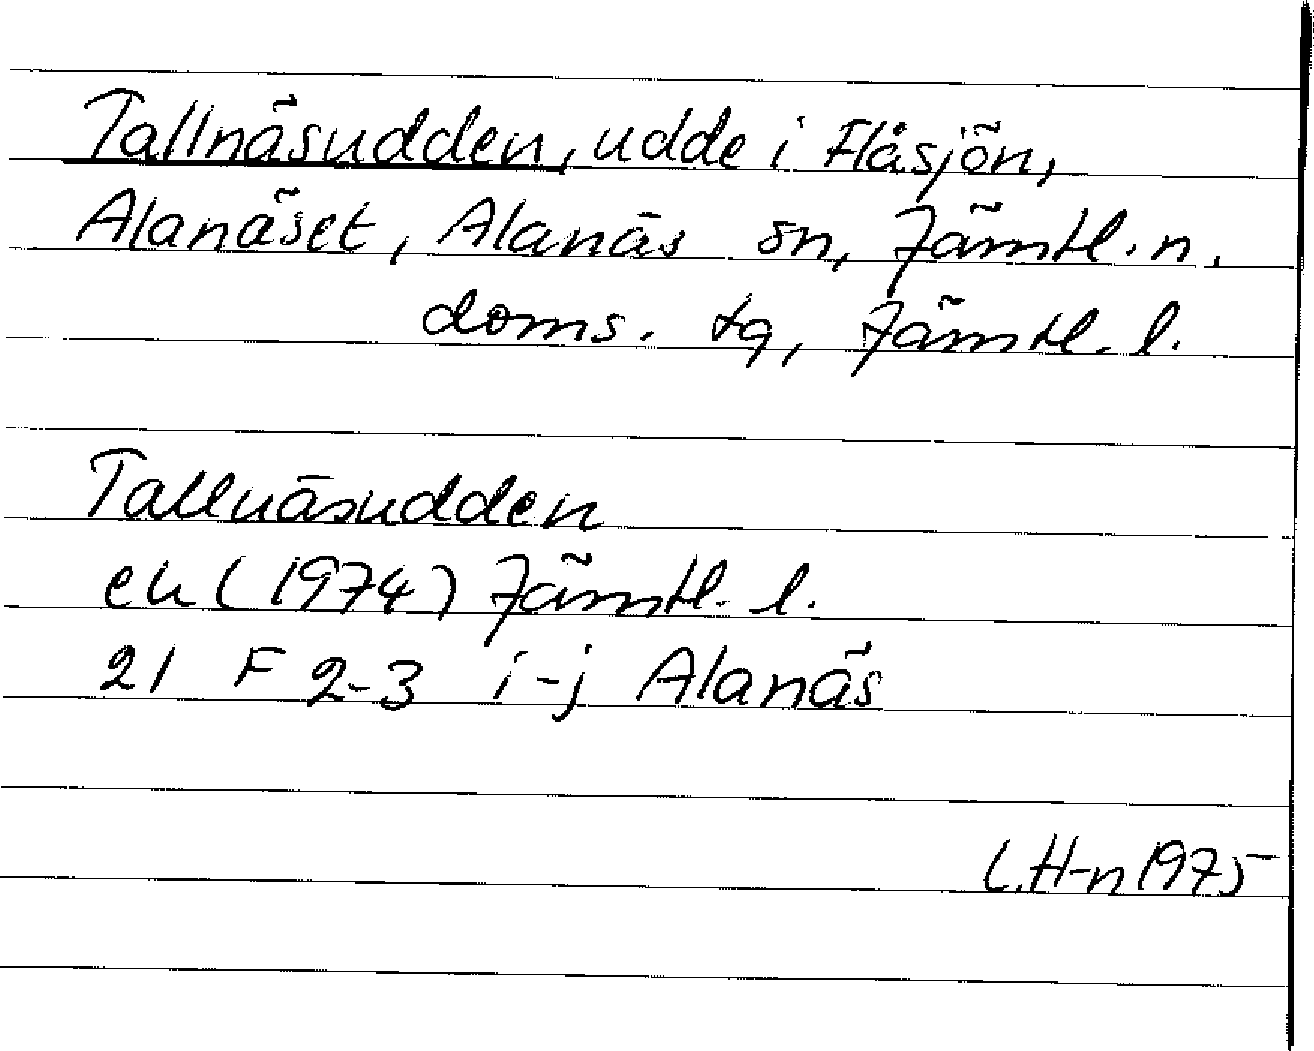 Tallnäsudden, udde i Flåsjön,
Alanäset, Alanäs sn, Jämtl. n.
doms. tg, Jämtl. l.
Tallnäsudden
ek (1974) Jämtl. l.
21 F 2-3 i-j Alanäs
L.H-n 1975